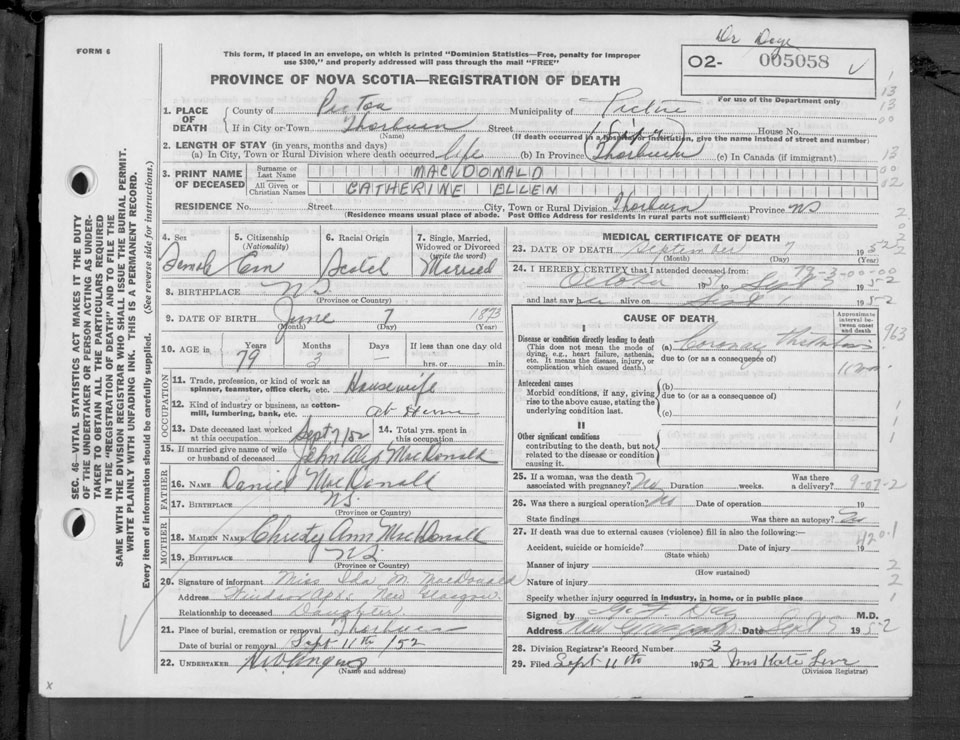 FORM 6
Dr Daye
This form, if placed in an envelope, on which is printed "Dominion Statistics—Free, penalty for improper
use $300," and properly addressed will pass through the mail "FREE"
O2- 005058
PROVINCE OF NOVA SCOTIA—REGISTRATION OF DEATH
For use of the Department only
1. PLACE OF DEATH
County of Pictou Municipality of Pictou
If in City or Town Thorburn Street House No.
(Name) (If death occurred in a hospital or institution, give the name instead of street and number)
2. LENGTH OF STAY (in years, months and days)
(a) In City, Town or Rural Division where death occurred life (b) In Province Thorburn (c) In Canada (if immigrant)
3. PRINT NAME OF DECEASED
Surname or Last Name MACDONALD
All Given or Christian Names CATHERINE ELLEN
RESIDENCE No. Street City, Town or Rural Division Thorburn Province NS
(Residence means usual place of abode. Post Office Address for residents in rural parts not sufficient)
4. Sex
Female
5. Citizenship
(Nationality)
Can
6. Racial Origin
Scotch
7. Single, Married,
Widowed or Divorced
(write the word)
Married
8. BIRTHPLACE NS
(Province or Country)
9. DATE OF BIRTH June 7 1873
(Month) (Day) (Year)
10. AGE in Years Months Days If less than one day old
79 3 — hrs. or min.
OCCUPATION
11. Trade, profession, or kind of work as
spinner, teamster, office clerk, etc. Housewife
12. Kind of industry or business, as cotton-
mill, lumbering, bank, etc. at Home
13. Date deceased last worked
at this occupation Sept 7/52
14. Total yrs. spent in
this occupation
15. If married give name of wife
or husband of deceased John Alex MacDonald
FATHER
16. NAME Daniel MacDonald
17. BIRTHPLACE NS.
(Province or Country)
MOTHER
18. MAIDEN NAME Christy Ann MacDonald
19. BIRTHPLACE NS.
(Province or Country)
20. Signature of informant Miss Ida M. MacDonald
Address Windsor Apts New Glasgow
Relationship to deceased Daughter
21. Place of burial, cremation or removal Thorburn
Date of burial or removal Sept 11th/52
22. UNDERTAKER
(Name and address)
MEDICAL CERTIFICATE OF DEATH
23. DATE OF DEATH September 7 1952
(Month) (Day) (Year)
79-3-00-00
24. I HEREBY CERTIFY that I attended deceased from:
October to Sept 7 1952
and last saw alive on Sept 1 1952
CAUSE OF DEATH
Approximate
interval be-
tween onset
and death
I
Disease or condition directly leading to death
(This does not mean the mode of
dying, e.g., heart failure, asthenia,
etc. It means the disease, injury, or
complication which caused death.)
(a) Coronary Thrombosis
due to (or as a consequence of)
963
Antecedent causes
Morbid conditions, if any, giving
rise to the above cause, stating the
underlying condition last.
(b)
due to (or as a consequence of)
(c)
II
Other significant conditions
contributing to the death, but not
related to the disease or condition
causing it.
25. If a woman, was the death
associated with pregnancy? No Duration weeks. Was there
a delivery?
9-07-2
26. Was there a surgical operation? No Date of operation 19
State findings Was there an autopsy? No
27. If death was due to external causes (violence) fill in also the following:—
420.1
Accident, suicide or homicide? Date of injury 19
(State which)
Manner of injury
(How sustained)
Nature of injury
Specify whether injury occurred in industry, in home, or in public place
Signed by G. F. Day M.D.
Address New Glasgow Date Sept 1952
28. Division Registrar's Record Number 3
29. Filed Sept 11th 1952
(Division Registrar)
SEC. 46—VITAL STATISTICS ACT MAKES IT THE DUTY
OF THE UNDERTAKER OR PERSON ACTING AS UNDER-
TAKER TO OBTAIN ALL THE PARTICULARS REQUIRED
IN THE "REGISTRATION OF DEATH" AND TO FILE THE
SAME WITH THE DIVISION REGISTRAR WHO SHALL ISSUE THE BURIAL PERMIT.
WRITE PLAINLY WITH UNFADING INK. THIS IS A PERMANENT RECORD.
Every item of information should be carefully supplied. (See reverse side for instructions.)